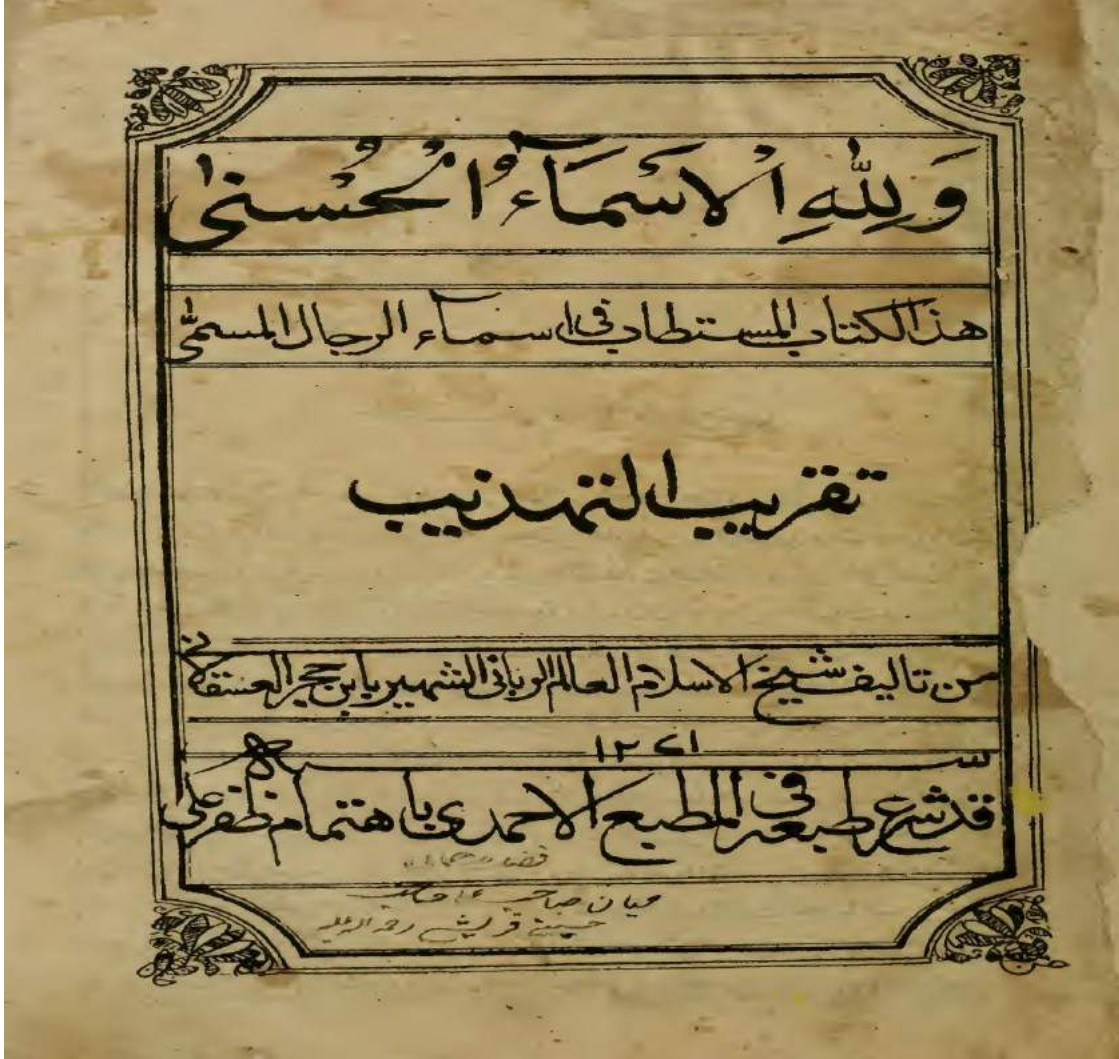 وَلِلّٰهِ الْاَسْمَآءُ الْحُسْنٰى
هذا الكتاب المستطاب فى اسمآء الرجال المسمّٰى
تقريب التهذيب
من تاليف شيخ الاسلام العالم الربانى الشهير بابن حجر العسقلانى
سنه ١٢٧١
قد شرع طبعه فى المطبع الاحمدى باهتمام ظفر على
ميان صاحب
حسين قريشى رحمة الله عليه